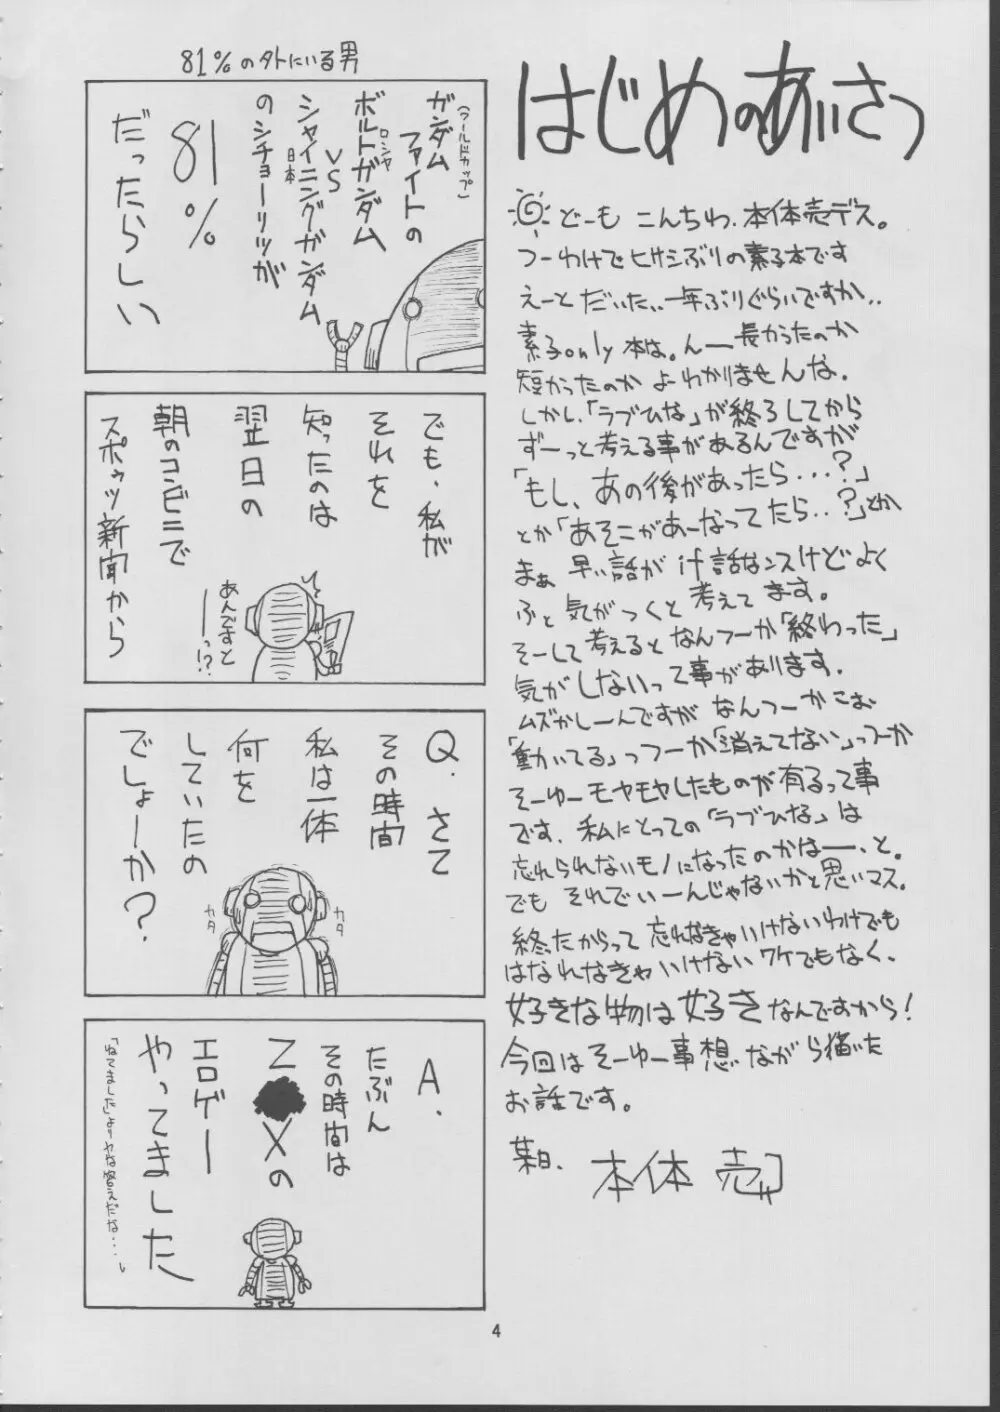 はじめのあいさつ
どーも こんちわ、本体売デス。
つーわけでヒサシぶりの素子本です
えーと だいたい、一年ぶりぐらいですか、、
素子only本は。んー長かったのか
短かったのか よーわかりませんな。
しかし、「ラブひな」が終了してから
ずーっと考える事があるんですが
「もし、あの後があったら・・・?」
とか「あそこがあーなってたら・・?」とか
まぁ 早い話がif話なンスけどよく
ふと気がつくと考えてます。
そーして考えるとなんつーか「終わった」
気がしないって事があります。
ムズかしーんですが なんつーかこお
「動いてる」っつーか「消えてない」っつーか
そーゆーモヤモヤしたものが有るって事
です。私にとっての「ラブひな」は
忘れられないモノになったのかはー、と。
でも それでいーんじゃないかと思いマス。
終ったからって 忘れなきゃいけないわけでも
はなれなきゃいけないワケでもなく、
好きな物は好きなんですから!
今回はそーゆー事想いながら描いた
お話です。
某日、 本体 売
81%のソトにいる男
ガンダム
(ワールドカップ)
ファイトの
ボルトガンダム
ロシヤ
VS
シャイニングガンダム
日本
のシチョーリツが
81%
だったらしい
でも、私が
それを
知ったのは
翌日の
朝のコンビニで
スポーツ新聞から
あんですと
ーっ!?
Q. さて
その時間
私は一体
何を
していたの
でしょーか?
カタ
カタ
A.
たぶん
その時間は
Z●Xの
エロゲー
やってました
「ねてました」よりヤな答えだな・・・。
4